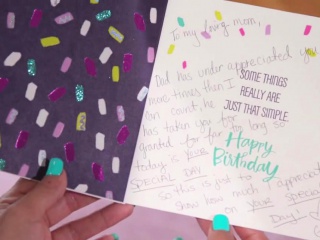 To my loving mom,
Dad has under appreciated you
more times than I
can count, he
has taken you for
granted for far to long so
today is YOUR
SPECIAL DAY.
So this is just to
show how much I appreciate
on your special
Day!
SOME THINGS
REALLY ARE
JUST THAT SIMPLE.
Happy
Birthday